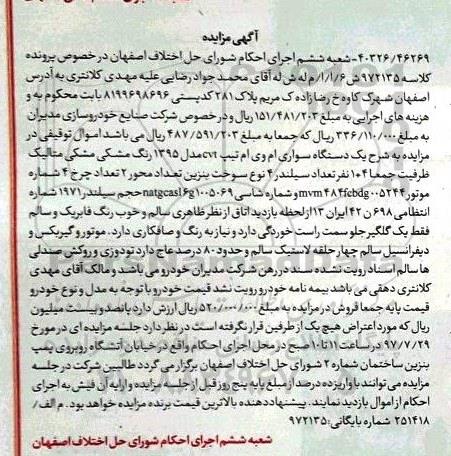 آگهی مزایده
۴۰۳۲۶/۴۶۲۶۹-شعبه ششم اجرای احکام شورای حل اختلاف اصفهان در خصوص پرونده
کلاسه ۹۷۲۱۳۵ش۶/ا/ا/م له ش له آقای محمد جواد رضایی علیه مهدی کلانتری به آدرس
اصفهان شهرک کاوه خ رضا زاده ک مریم پلاک ۲۸۱ کدپستی ۸۱۹۹۶۹۸۶۹۶ بابت محکوم به و
هزینه های اجرایی به مبلغ ۱۵۱/۴۸۱/۲۰۳ریال و در خصوص شرکت صنایع خودروسازی مدیران
به مبلغ ۳۳۶/۱۱۰/۰۰۰ ریال که جمعا به مبلغ ۴۸۷/۵۹۱/۲۰۳ ریال می باشد اموال توقیفی در
مزایده به شرح یک دستگاه سواری ام وی ام تیپ cvt مدل ۱۳۹۵ رنگ مشکی مشکی متالیک
ظرفیت جمعا ۴+۱ نفر تعداد سیلندر ۴ نوع سوخت بنزین تعداد محور ۲ تعداد چرخ ۴ شماره
موتور mvm۴۸۴fcbdg۰۰۵۲۴۴ و شماره شاسی natgcasl۶g۱۰۰۵۰۶۹ حجم سیلندر ۱۹۷۱ شماره
انتظامی ۶۹۸ ن ۴۲ ایران ۱۳ از لحظه بازدید اتاق از نظر ظاهری سالم و خوب رنگ فابریک و سالم
فقط یک گلگیر جلو سمت راست خوردگی دارد و نیاز به رنگ و صافکاری دارد. موتور و گیربکس و
دیفرانسیل سالم چهار حلقه لاستیک سالم و حدود ۸۰ درصد عاج دارد تودوزی و روکش صندلی
ها سالم اسناد رویت نشده سند در رهن شرکت مدیران خودرو می باشد و مالک آقای مهدی
کلانتری دهقی می باشد بیمه نامه خودرو رویت نشد قیمت خودرو با توجه به مدل و نوع خودرو
قیمت پایه جمعا فروش در مزایده به مبلغ ۵۲۰/۰۰۰/۰۰۰ ریال ارزش دارد پانصد و بیست میلیون
ریال که مورد اعتراض هیچ یک از طرفین قرار نگرفته است در نظر دارد جلسه مزایده ای در مورخ
۹۷/۷/۲۹ در ساعت ۱۱ تا ۱۰ صبح در محل اجرای احکام واقع در خیابان آتشگاه روبروی پمپ
بنزین ساختمان شماره ۲ شورای حل اختلاف اصفهان برگزار می گردد طالبین شرکت در جلسه
مزایده می توانند با واریز ده درصد از مبلغ پایه پنج روز قبل از جلسه مزایده و ارایه آن فیش به اجرای
احکام از اموال بازدید نمایند. پیشنهاد دهنده بالاترین قیمت برنده مزایده خواهد بود. م الف/
۲۵۱۴۱۸ شماره بایگانی: ۹۷۲۱۳۵
شعبه ششم اجرای احکام شورای حل اختلاف اصفهان